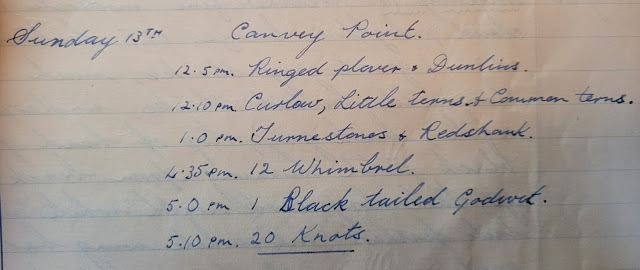 Sunday 13TH Canvey Point.
12.5 pm. Ringed plover & Dunlins.
12.10 pm Curlow, Little terns & Common terns.
1.0 pm. Turnestones & Redshank.
4.35 pm. 12 Whimbrel.
5.0 pm 1 Black tailed Godwit.
5.10 pm. 20 Knots.